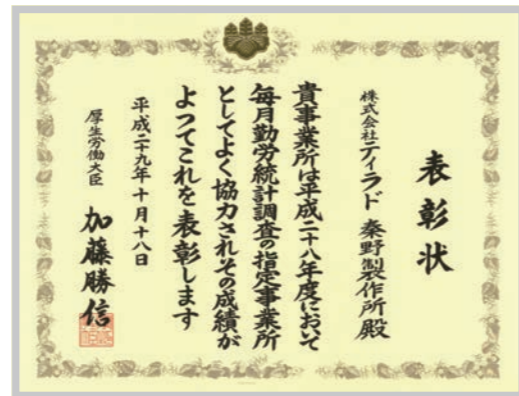 表彰状
株式会社ティラド 秦野製作所殿
貴事業所は平成二十八年度において
毎月勤労統計調査の指定事業所
としてよく協力されその成績が
よつてこれを表彰します
平成二十九年十月十八日
厚生労働大臣 加藤勝信